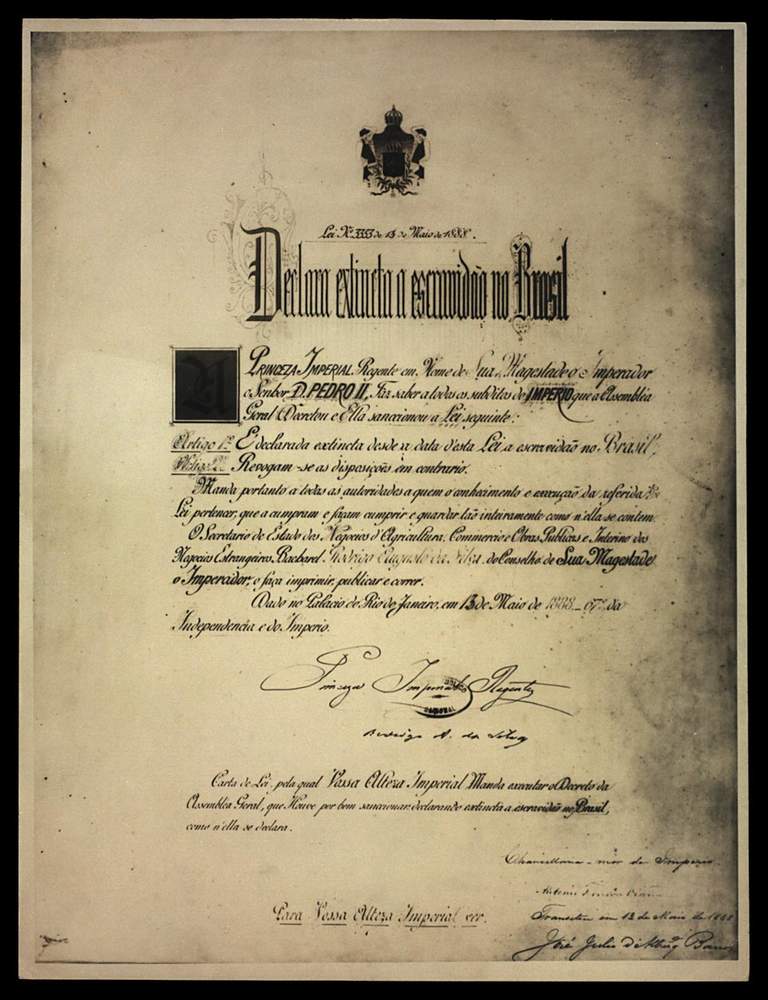 Lei Nº 3353 de 13 de Maio de 1888.
Declara extincta a escravidão no Brasil
A PRINCEZA IMPERIAL Regente em Nome de Sua Magestade o Imperador
o Senhor D. PEDRO II, Faz saber a todos os subditos do IMPERIO que a Assembléa
Geral Decretou e Ella sanccionou a Lei seguinte:
Artigo 1º E' declarada extincta desde a data d'esta Lei a escravidão no Brasil.
Artigo 2º Revogam-se as disposições em contrario.
Manda portanto a todas as autoridades a quem o conhecimento e execução da referida
Lei pertencer, que a cumpram e façam cumprir e guardar tão inteiramente como n'ella se contem.
O Secretario de Estado dos Negocios d'Agricultura, Commercio e Obras Publicas e Interino dos
Negocios Estrangeiros, Bacharel Rodrigo Augusto da Silva, do Conselho de Sua Magestade
o Imperador, o faça imprimir, publicar e correr.
Dado no Palacio do Rio de Janeiro, em 13 de Maio de 1888 - 67º da
Independencia e do Imperio.
Princeza Imperial Regente
NACIONAL
Rodrigo A. da Silva
Carta de Lei, pela qual Vossa Alteza Imperial Manda executar o Decreto da
Assembléa Geral, que Houve por bem sanccionar, declarando extincta a escravidão no Brasil,
como n'ella se declara.
Chancellaria-mór do Imperio
Antonio Ferreira Vianna
Para Vossa Alteza Imperial ver.
Transitou em 13 de Maio de 1888
José Julio d'Albuqº Barros